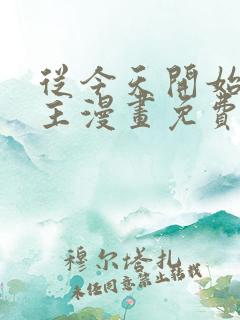 從今天開始
王漫畫免費
穆尔塔扎
未经同意禁止转载